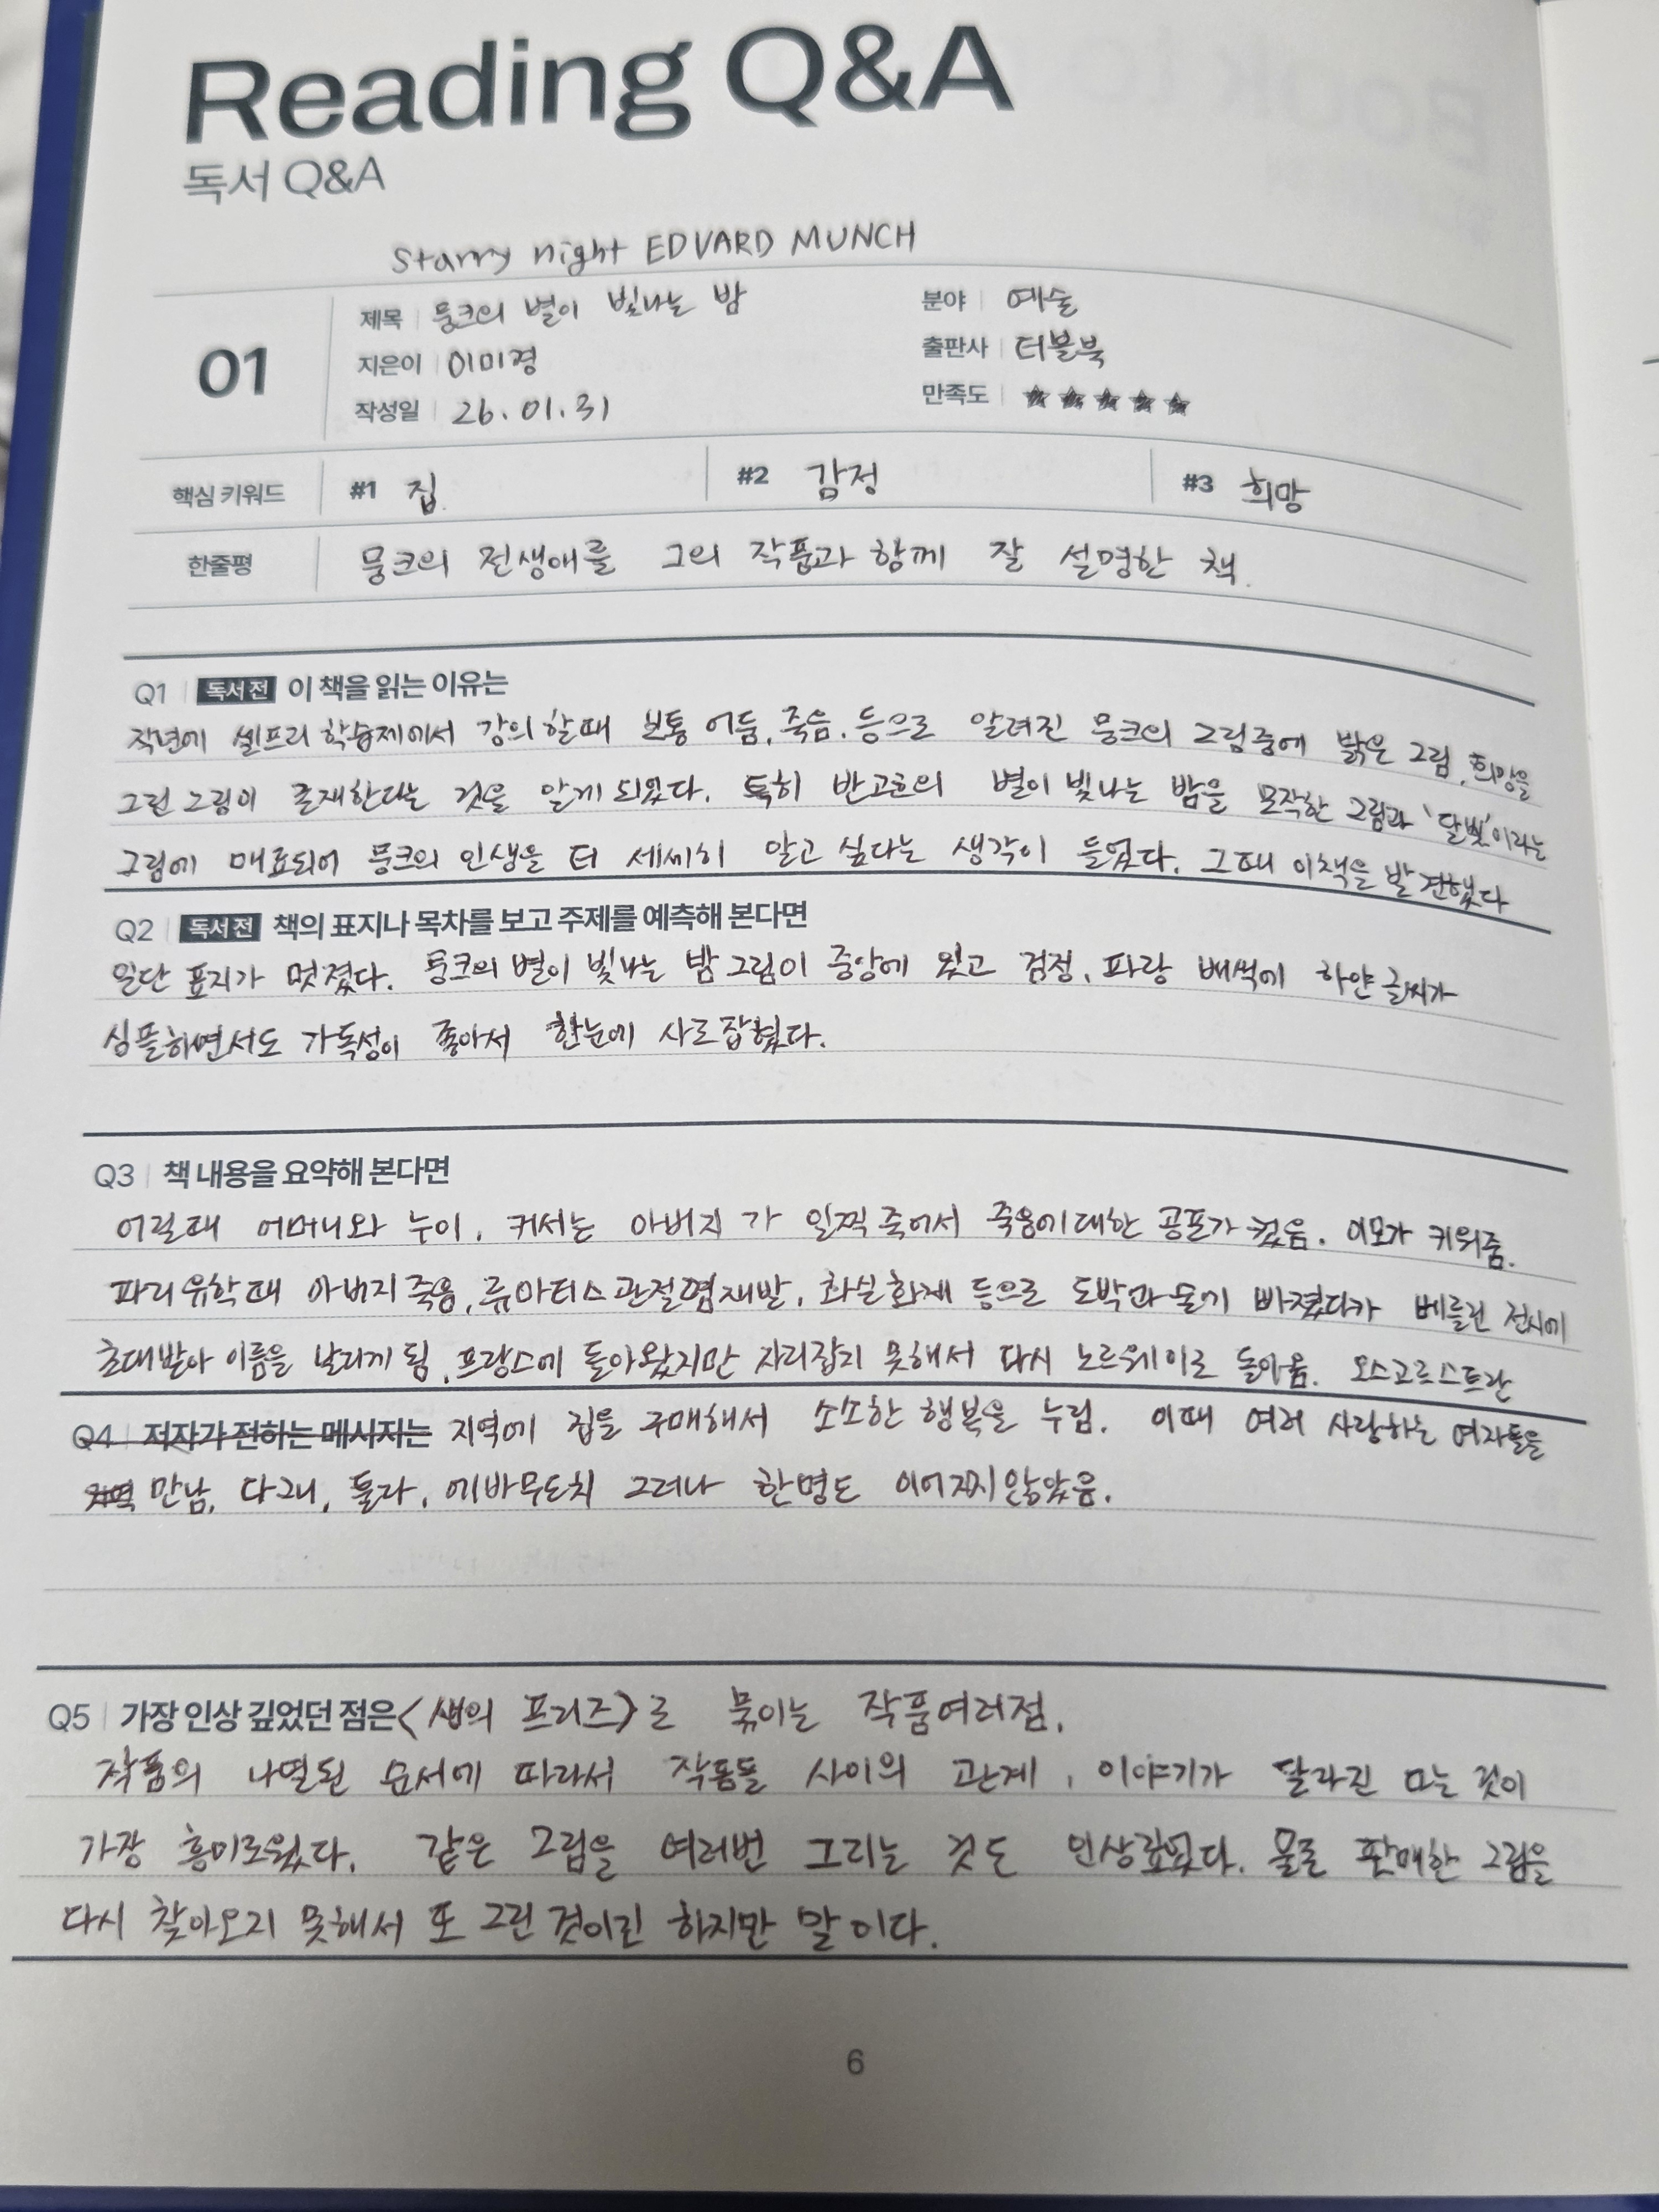 Reading Q&A
독서 Q&A
Starry night EDVARD MUNCH
01
제목 뭉크의 별이 빛나는 밤
분야 예술
지은이 이미경
출판사 더블북
작성일 26.01.31
만족도 ★★★★★
핵심 키워드 #1 집 #2 감정 #3 희망
한줄평 뭉크의 전생애를 그의 작품과 함께 잘 설명한 책.
Q1 독서 전 이 책을 읽는 이유는
작년에 셀프리 학습제에서 강의할때 보통 어둠, 죽음. 등으로 알려진 뭉크의 그림중에 밝은 그림, 희망을
그린 그림이 존재한다는 것을 알게 되었다. 특히 반고흐의 별이 빛나는 밤을 모작한 그림과 '달빛'이라는
그림에 매료되어 뭉크의 인생을 더 세세히 알고 싶다는 생각이 들었다. 그때 이책을 발견했다
Q2 독서 전 책의 표지나 목차를 보고 주제를 예측해 본다면
일단 표지가 멋졌다. 뭉크의 별이 빛나는 밤 그림이 중앙에 있고 검정, 파랑 배색에 하얀 글씨가
심플하면서도 가독성이 좋아서 한눈에 사로잡혔다.
Q3 책 내용을 요약해 본다면
어릴때 어머니와 누이, 커서는 아버지가 일찍 죽어서 죽음에대한 공포가 컸음. 이모가 키워줌.
파리유학때 아버지죽음, 류마티스관절염재발, 화실화재 등으로 도박과 술에 빠졌다가 베를린 전시에
초대받아 이름을 날리게 됨, 프랑스에 돌아왔지만 자리잡지 못해서 다시 노르웨이로 돌아옴. 오스고르스트란
Q4 저자가 전하는 메시지는 지역에 집을 구매해서 소소한 행복을 누림. 이때 여러 사랑하는 여자들을
만남. 다그니, 툴라, 에바무도치 그러나 한명도 이어지지않았음.
Q5 가장 인상 깊었던 점은 <생의 프리즈>로 묶이는 작품여러점.
작품의 나열된 순서에 따라서 작품들 사이의 관계, 이야기가 달라진 다는 것이
가장 흥미로웠다. 같은 그림을 여러번 그리는 것도 인상깊었다. 물론 판매한 그림을
다시 찾아오지 못해서 또 그린 것이긴 하지만 말이다.
6